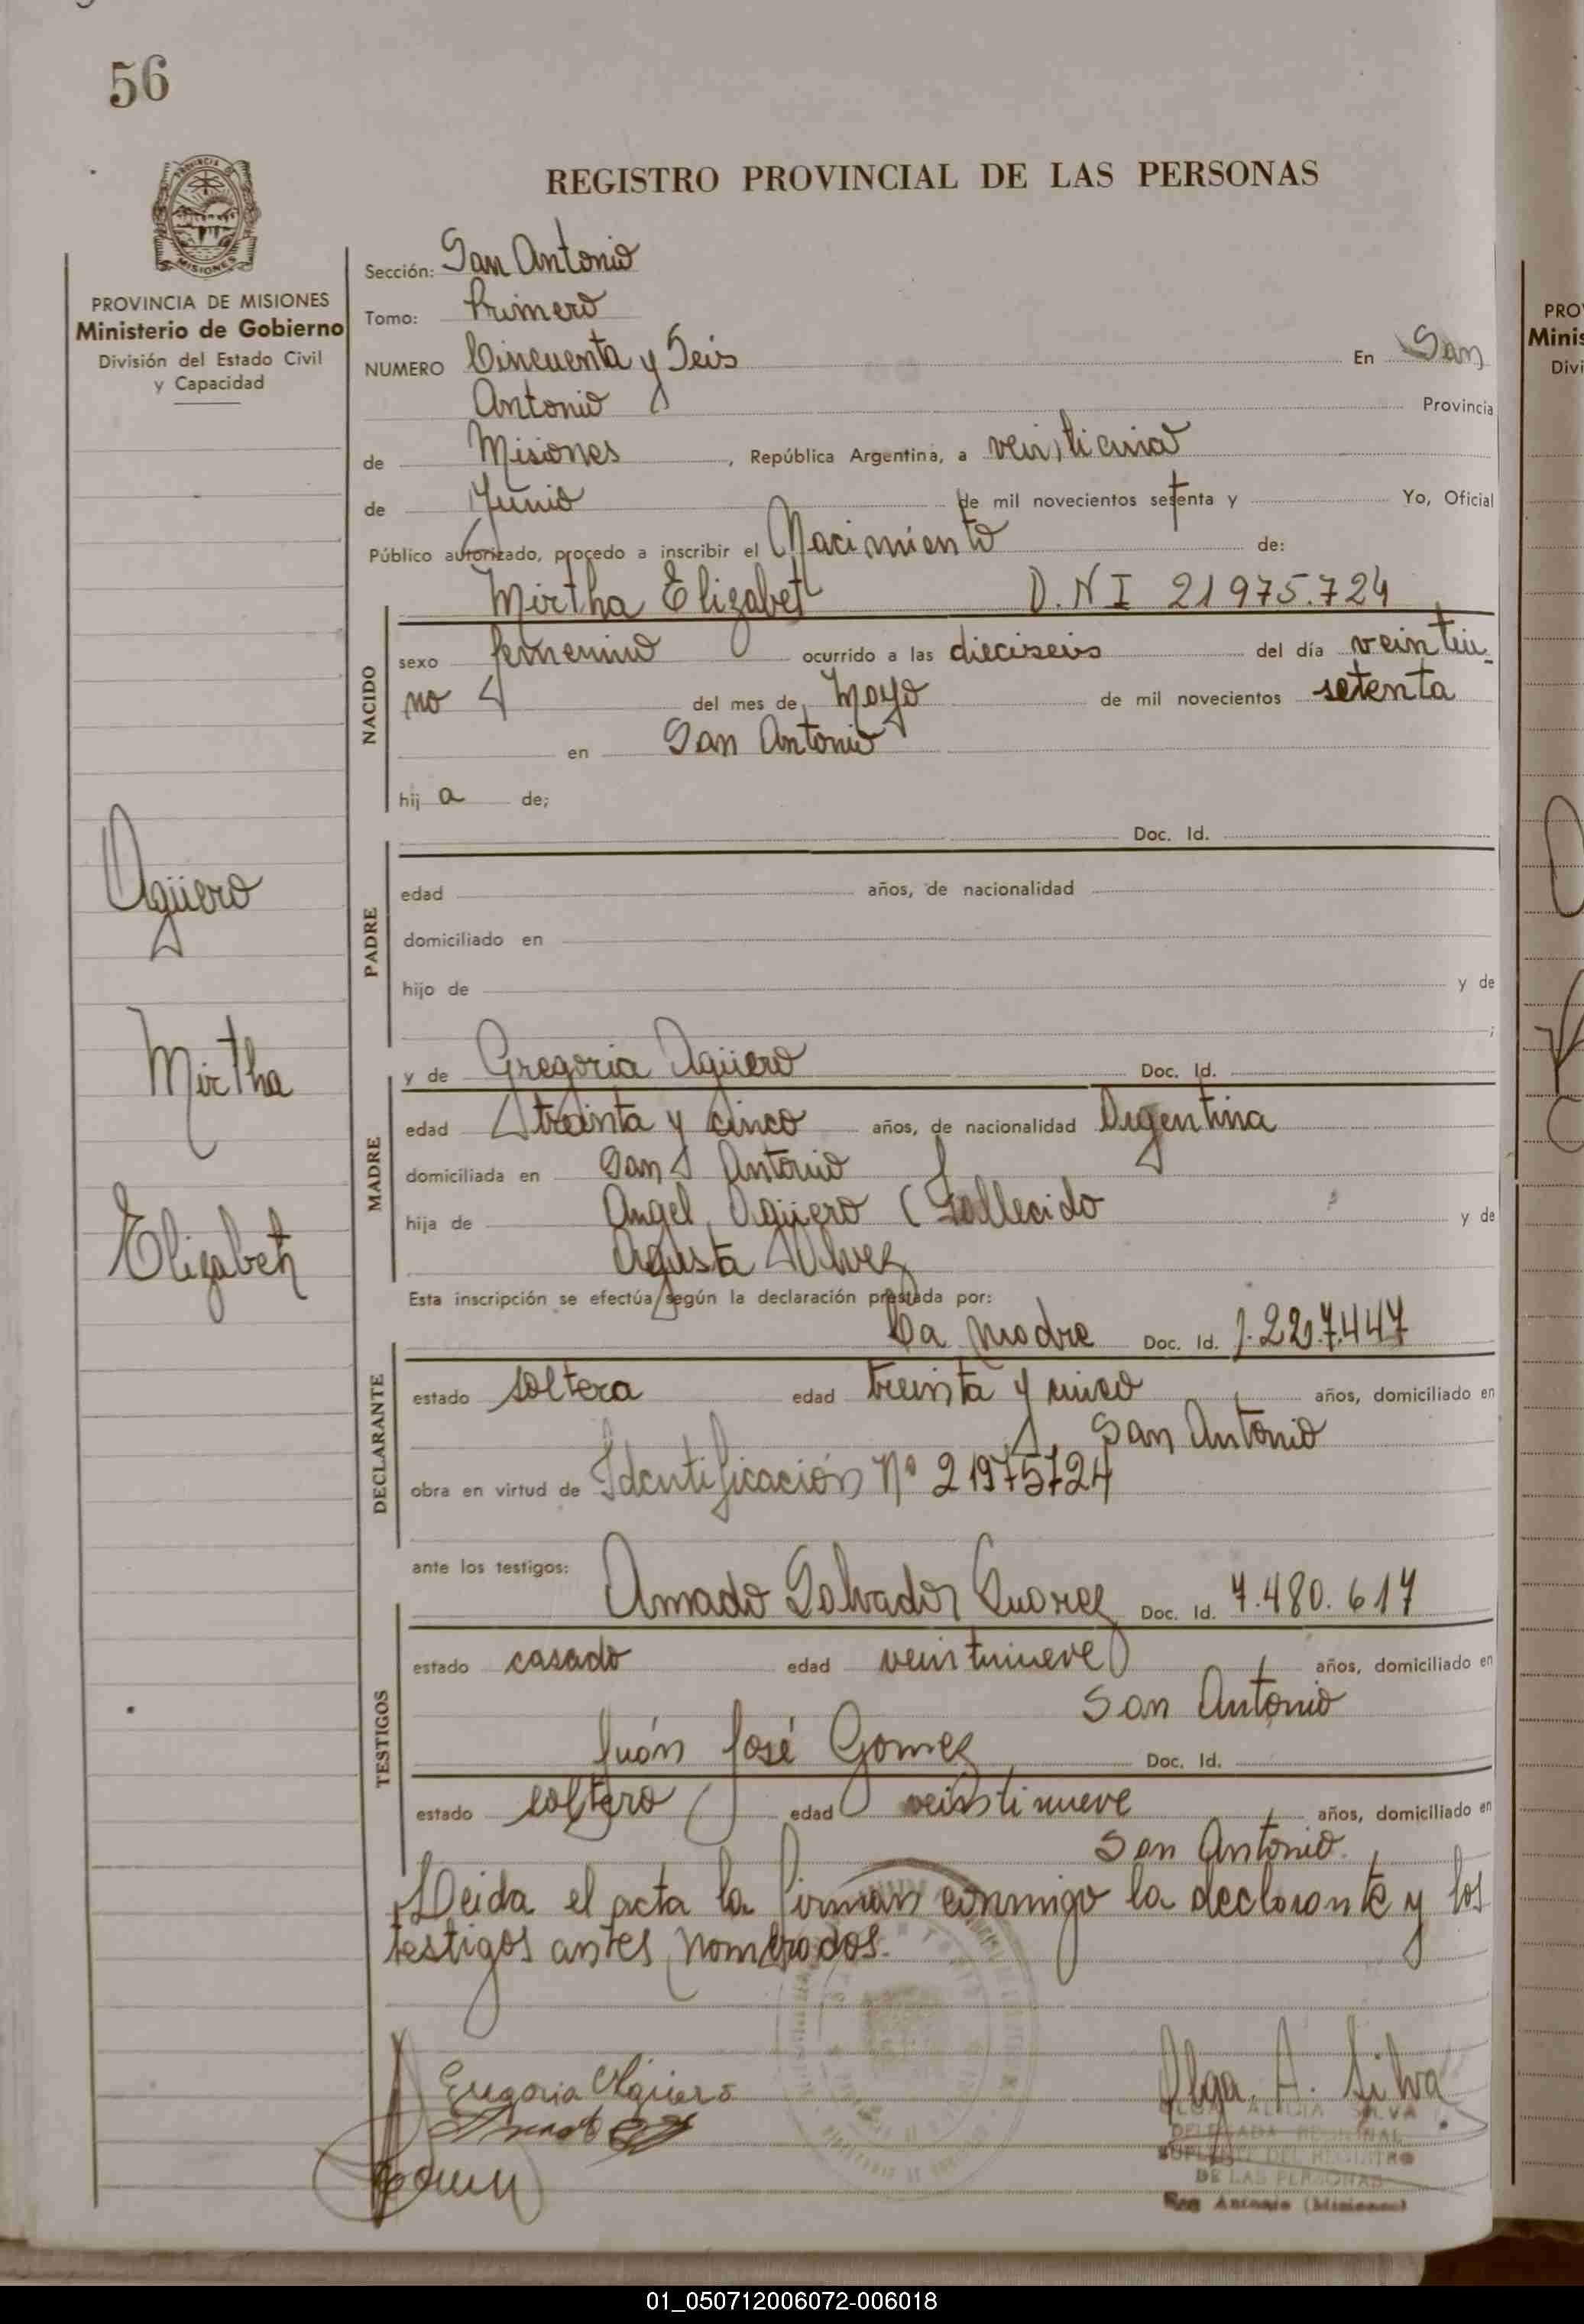 56
PROVINCIA
MISIONES
PROVINCIA DE MISIONES
Ministerio de Gobierno
División del Estado Civil
y Capacidad
REGISTRO PROVINCIAL DE LAS PERSONAS
Sección: San Antonio
Tomo: Primero
NUMERO Cincuenta y Seis En San
Antonio Provincia
de Misiones, República Argentina, a veinticinco
de Junio de mil novecientos setenta y Yo, Oficial
Público autorizado, procedo a inscribir el Nacimiento de:
Mirtha Elizabet D.N.I 21975.724
NACIDO
sexo femenino ocurrido a las dieciseis del día veintiu-
no del mes de Mayo de mil novecientos setenta
en San Antonio
hij a de;
Doc. Id.
PADRE
edad años, de nacionalidad
domiciliado en
hijo de y de
;
y de Gregoria Agüero Doc. Id.
MADRE
edad treinta y cinco años, de nacionalidad Argentina
domiciliada en San Antonio
hija de Angel Agüero (Fallecido y de
Agusta Alvez
Esta inscripción se efectúa según la declaración prestada por:
La madre Doc. Id. 1.227.447
DECLARANTE
estado soltera edad treinta y cinco años, domiciliado en
San Antonio
obra en virtud de Identificación Nº 21975724
ante los testigos:
Amado Salvador Suarez Doc. Id. 7.480.617
TESTIGOS
estado casado edad veintinueve años, domiciliado en
San Antonio
Juán José Gomez Doc. Id.
estado soltero edad veintinueve años, domiciliado en
San Antonio.
Leida el acta la firman conmigo la declarante y los
testigos antes nombrados.
Agüero
Mirtha
Elizabeth
Olga. A. Silva
OLGA ALICIA SILVA
DELEGADA REGIONAL
SUPLENTE DEL REGISTRO
DE LAS PERSONAS
San Antonio (Misiones)
PRO
Minis
Divi
01_050712006072-006018